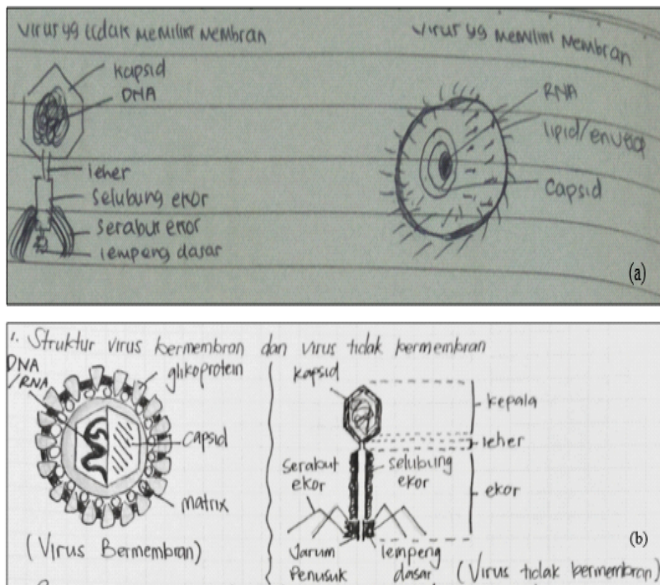 virus yg tidak memiliki membran
kapsid
DNA
leher
selubung ekor
serabut ekor
lempeng dasar
virus yg memiliki membran
RNA
lipid/envelop
capsid
(a)
1. Struktur virus bermembran dan virus tidak bermembran
DNA
/RNA
glikoprotein
capsid
matrix
(Virus Bermembran)
kapsid
kepala
leher
serabut
ekor
selubung
ekor
ekor
Jarum
Penusuk
lempeng
dasar
(Virus tidak bermembran)
(b)